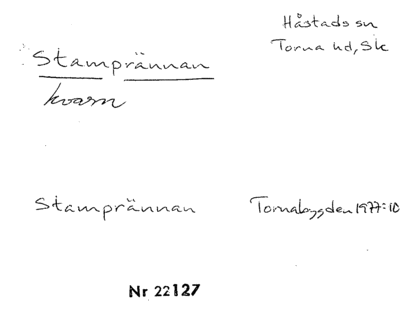 Håstads sn
Torna hd, Sk
Stamprännan
kvarn
Stamprännan Tornabygden 1977:10
Nr 22127